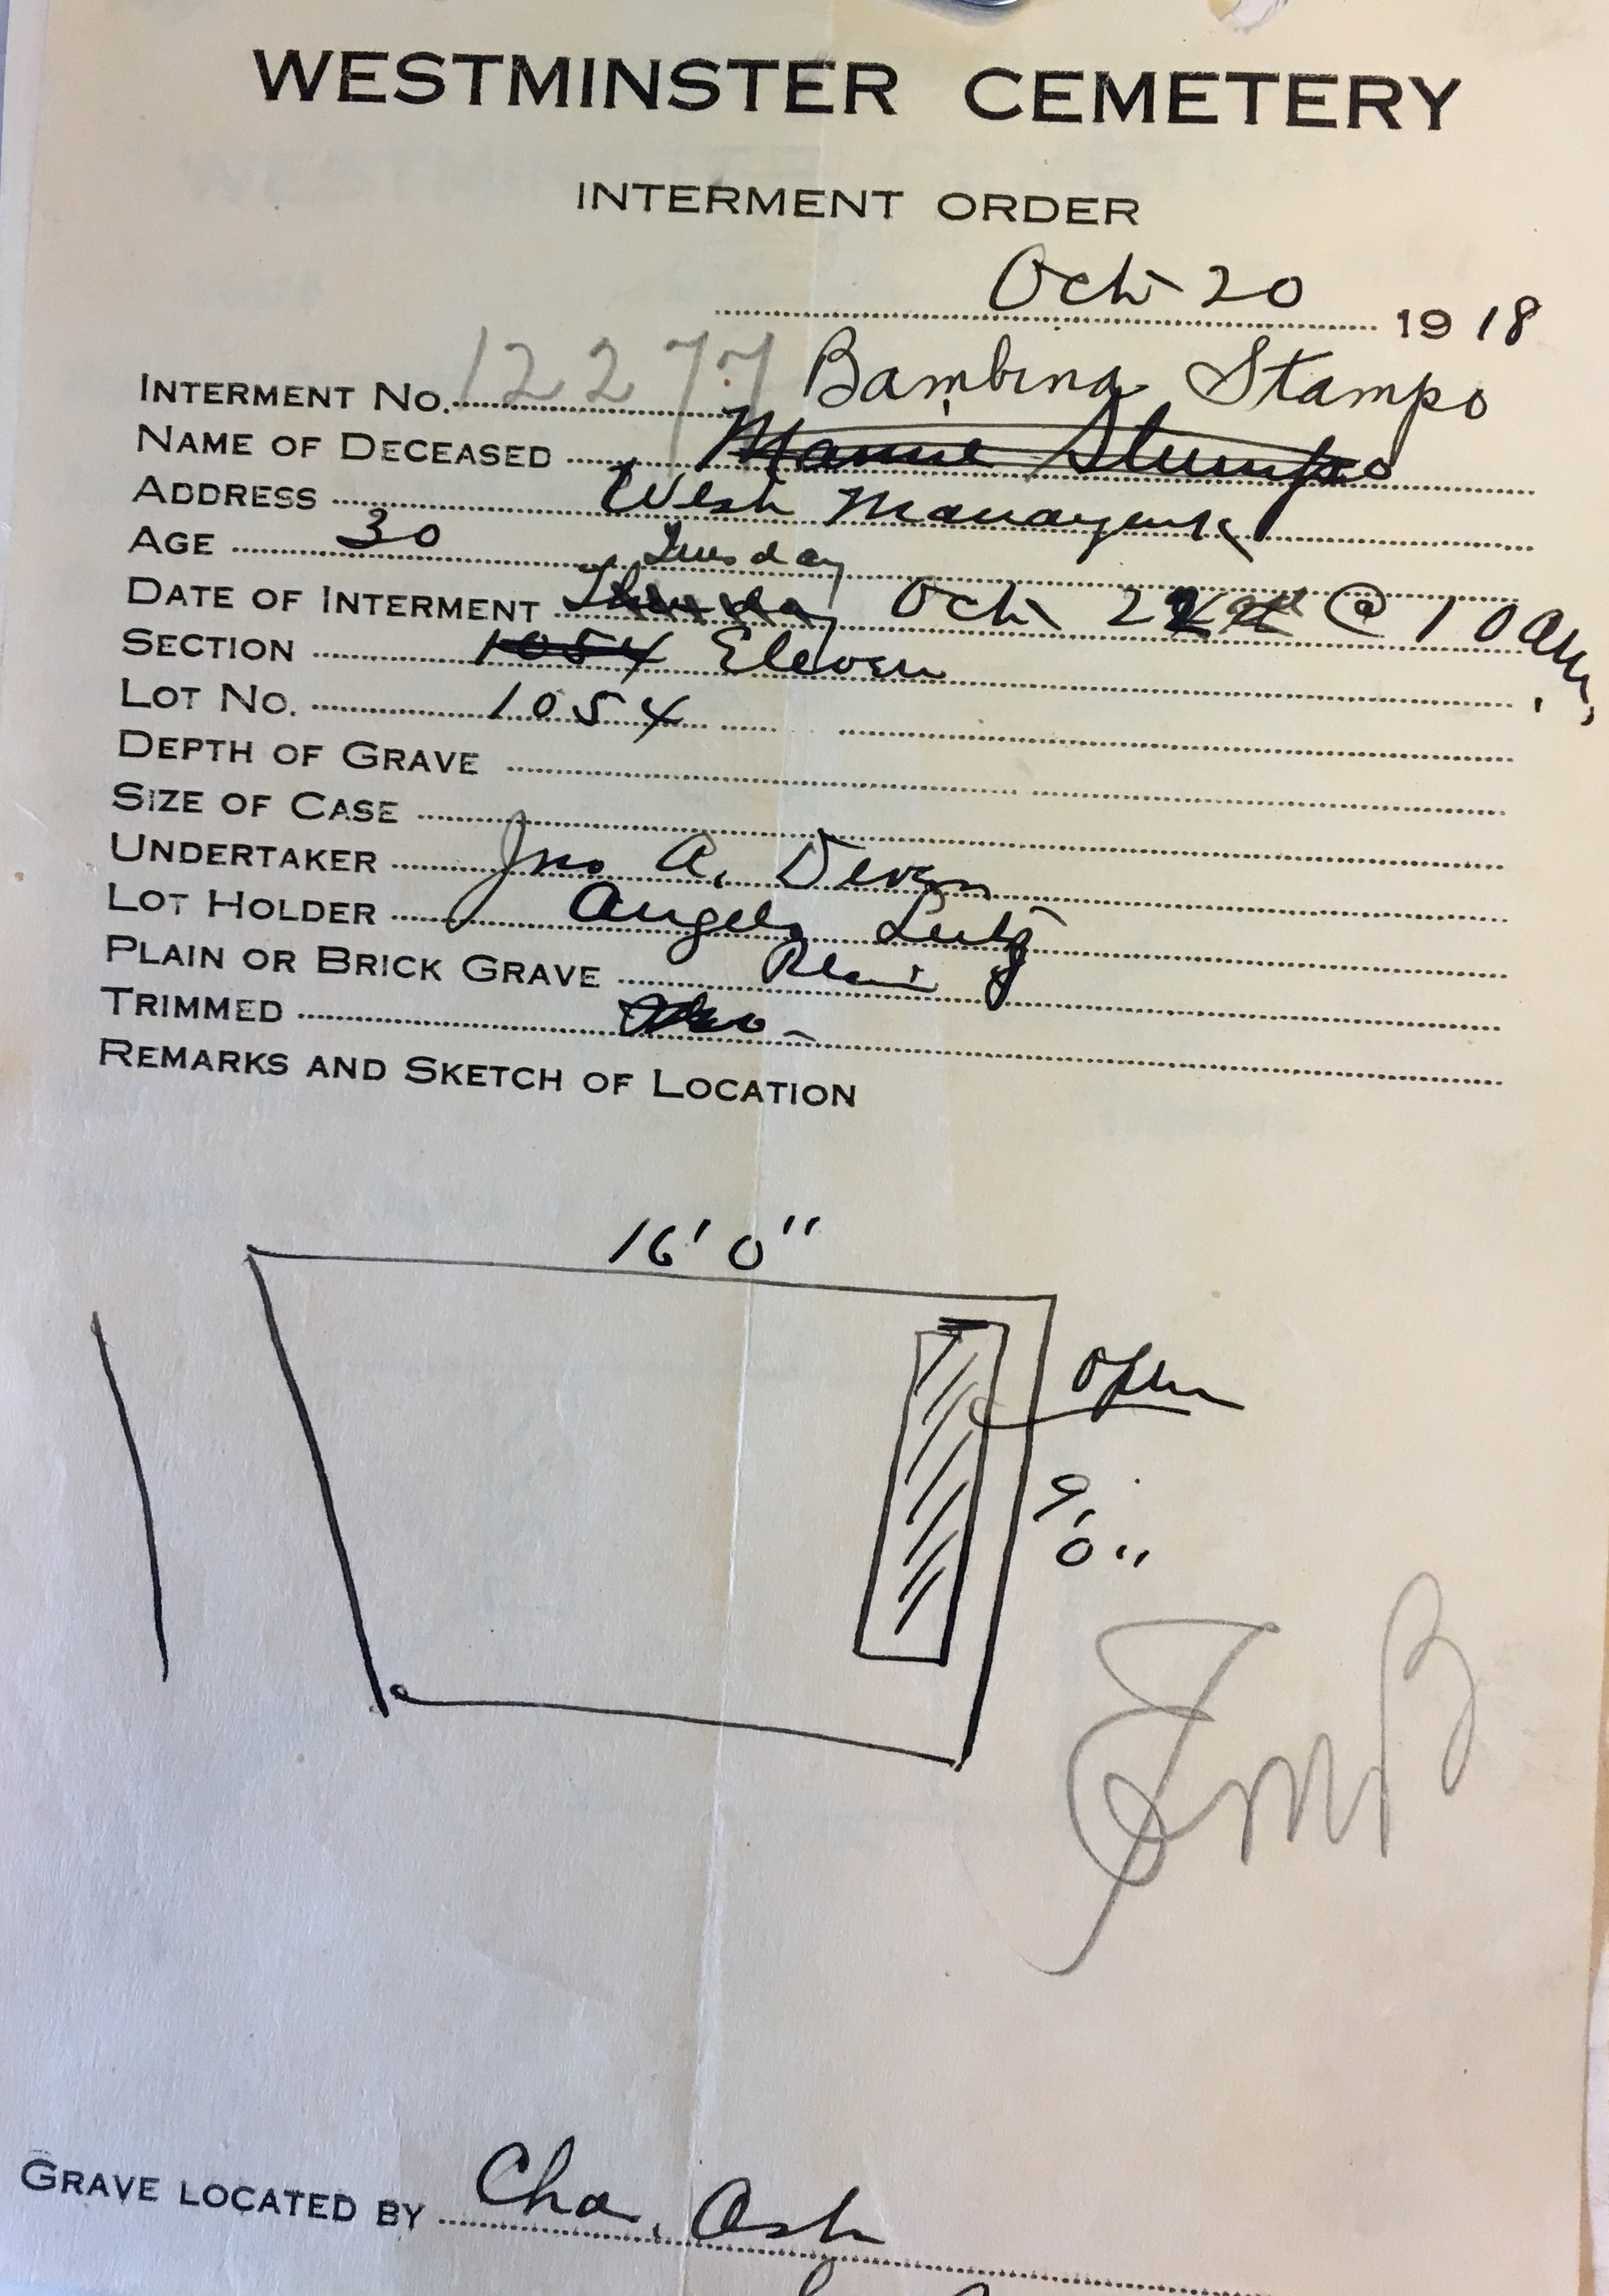 WESTMINSTER CEMETERY
INTERMENT ORDER
Oct 20 1918
INTERMENT No. 12277 Bambina Stampo
NAME OF DECEASED Mamie Stumpo
ADDRESS West Manayunk
AGE 30
Tuesday
DATE OF INTERMENT Oct 22 @ 10 am,
SECTION 1054 Eleven
LOT No. 1054
DEPTH OF GRAVE
SIZE OF CASE
UNDERTAKER Jno A. Deven
LOT HOLDER Angelo
PLAIN OR BRICK GRAVE Plain
TRIMMED
REMARKS AND SKETCH OF LOCATION
16' 0"
open
9'
0"
GRAVE LOCATED BY Cha. Ash